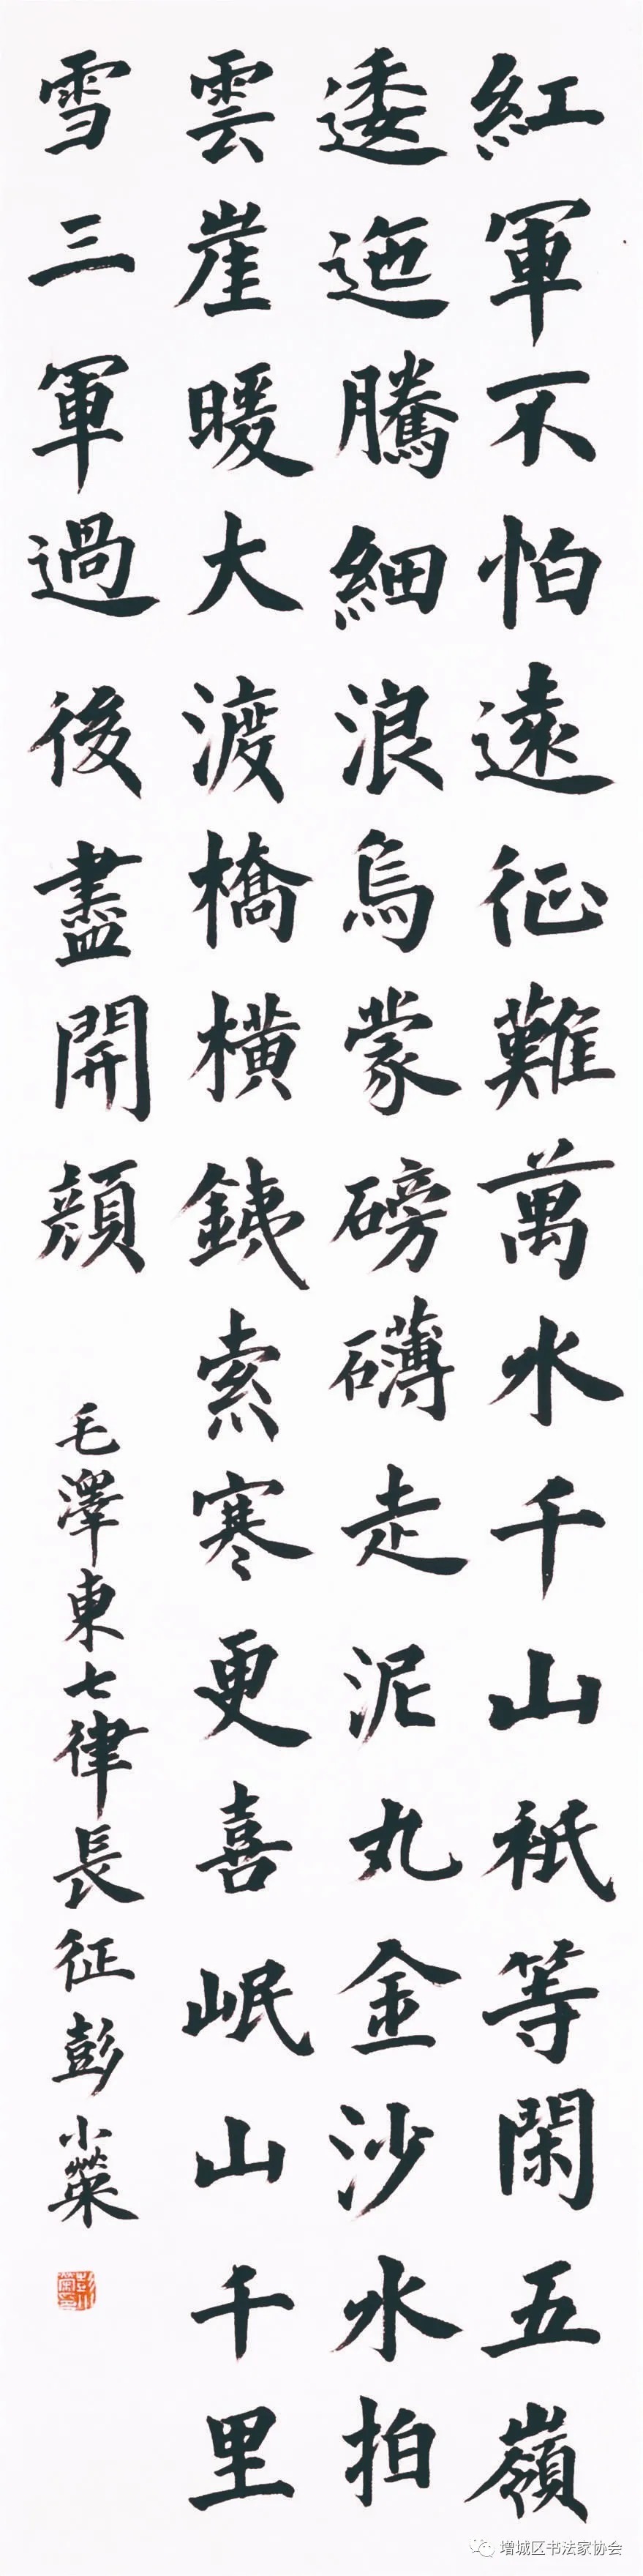 紅軍不怕遠征難萬水千山衹等閑五嶺
逶迤騰細浪烏蒙磅礴走泥丸金沙水拍
雲崖暖大渡橋橫鐵索寒更喜岷山千里
雪三軍過後盡開顏
毛澤東七律長征彭小蘂
增城区书法家协会